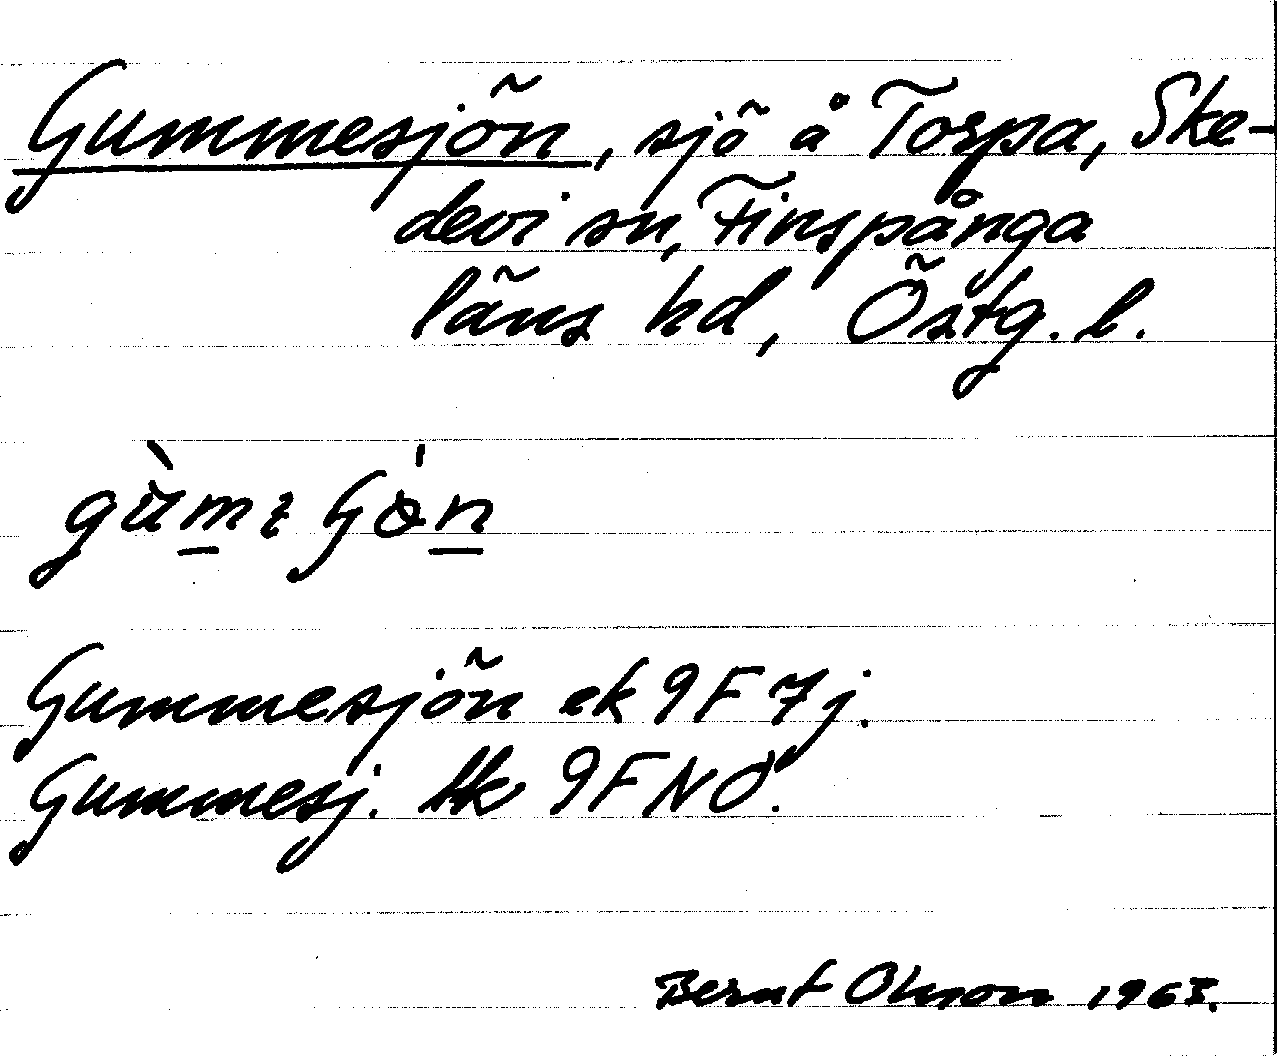 Gummesjön, sjö å Torpa, Ske-
devi sn, Finspånga
läns hd, Östg. l.
Gummesjön ek 9F 7j.
Gummesj. tk 9F NO.
Bernt Olsson